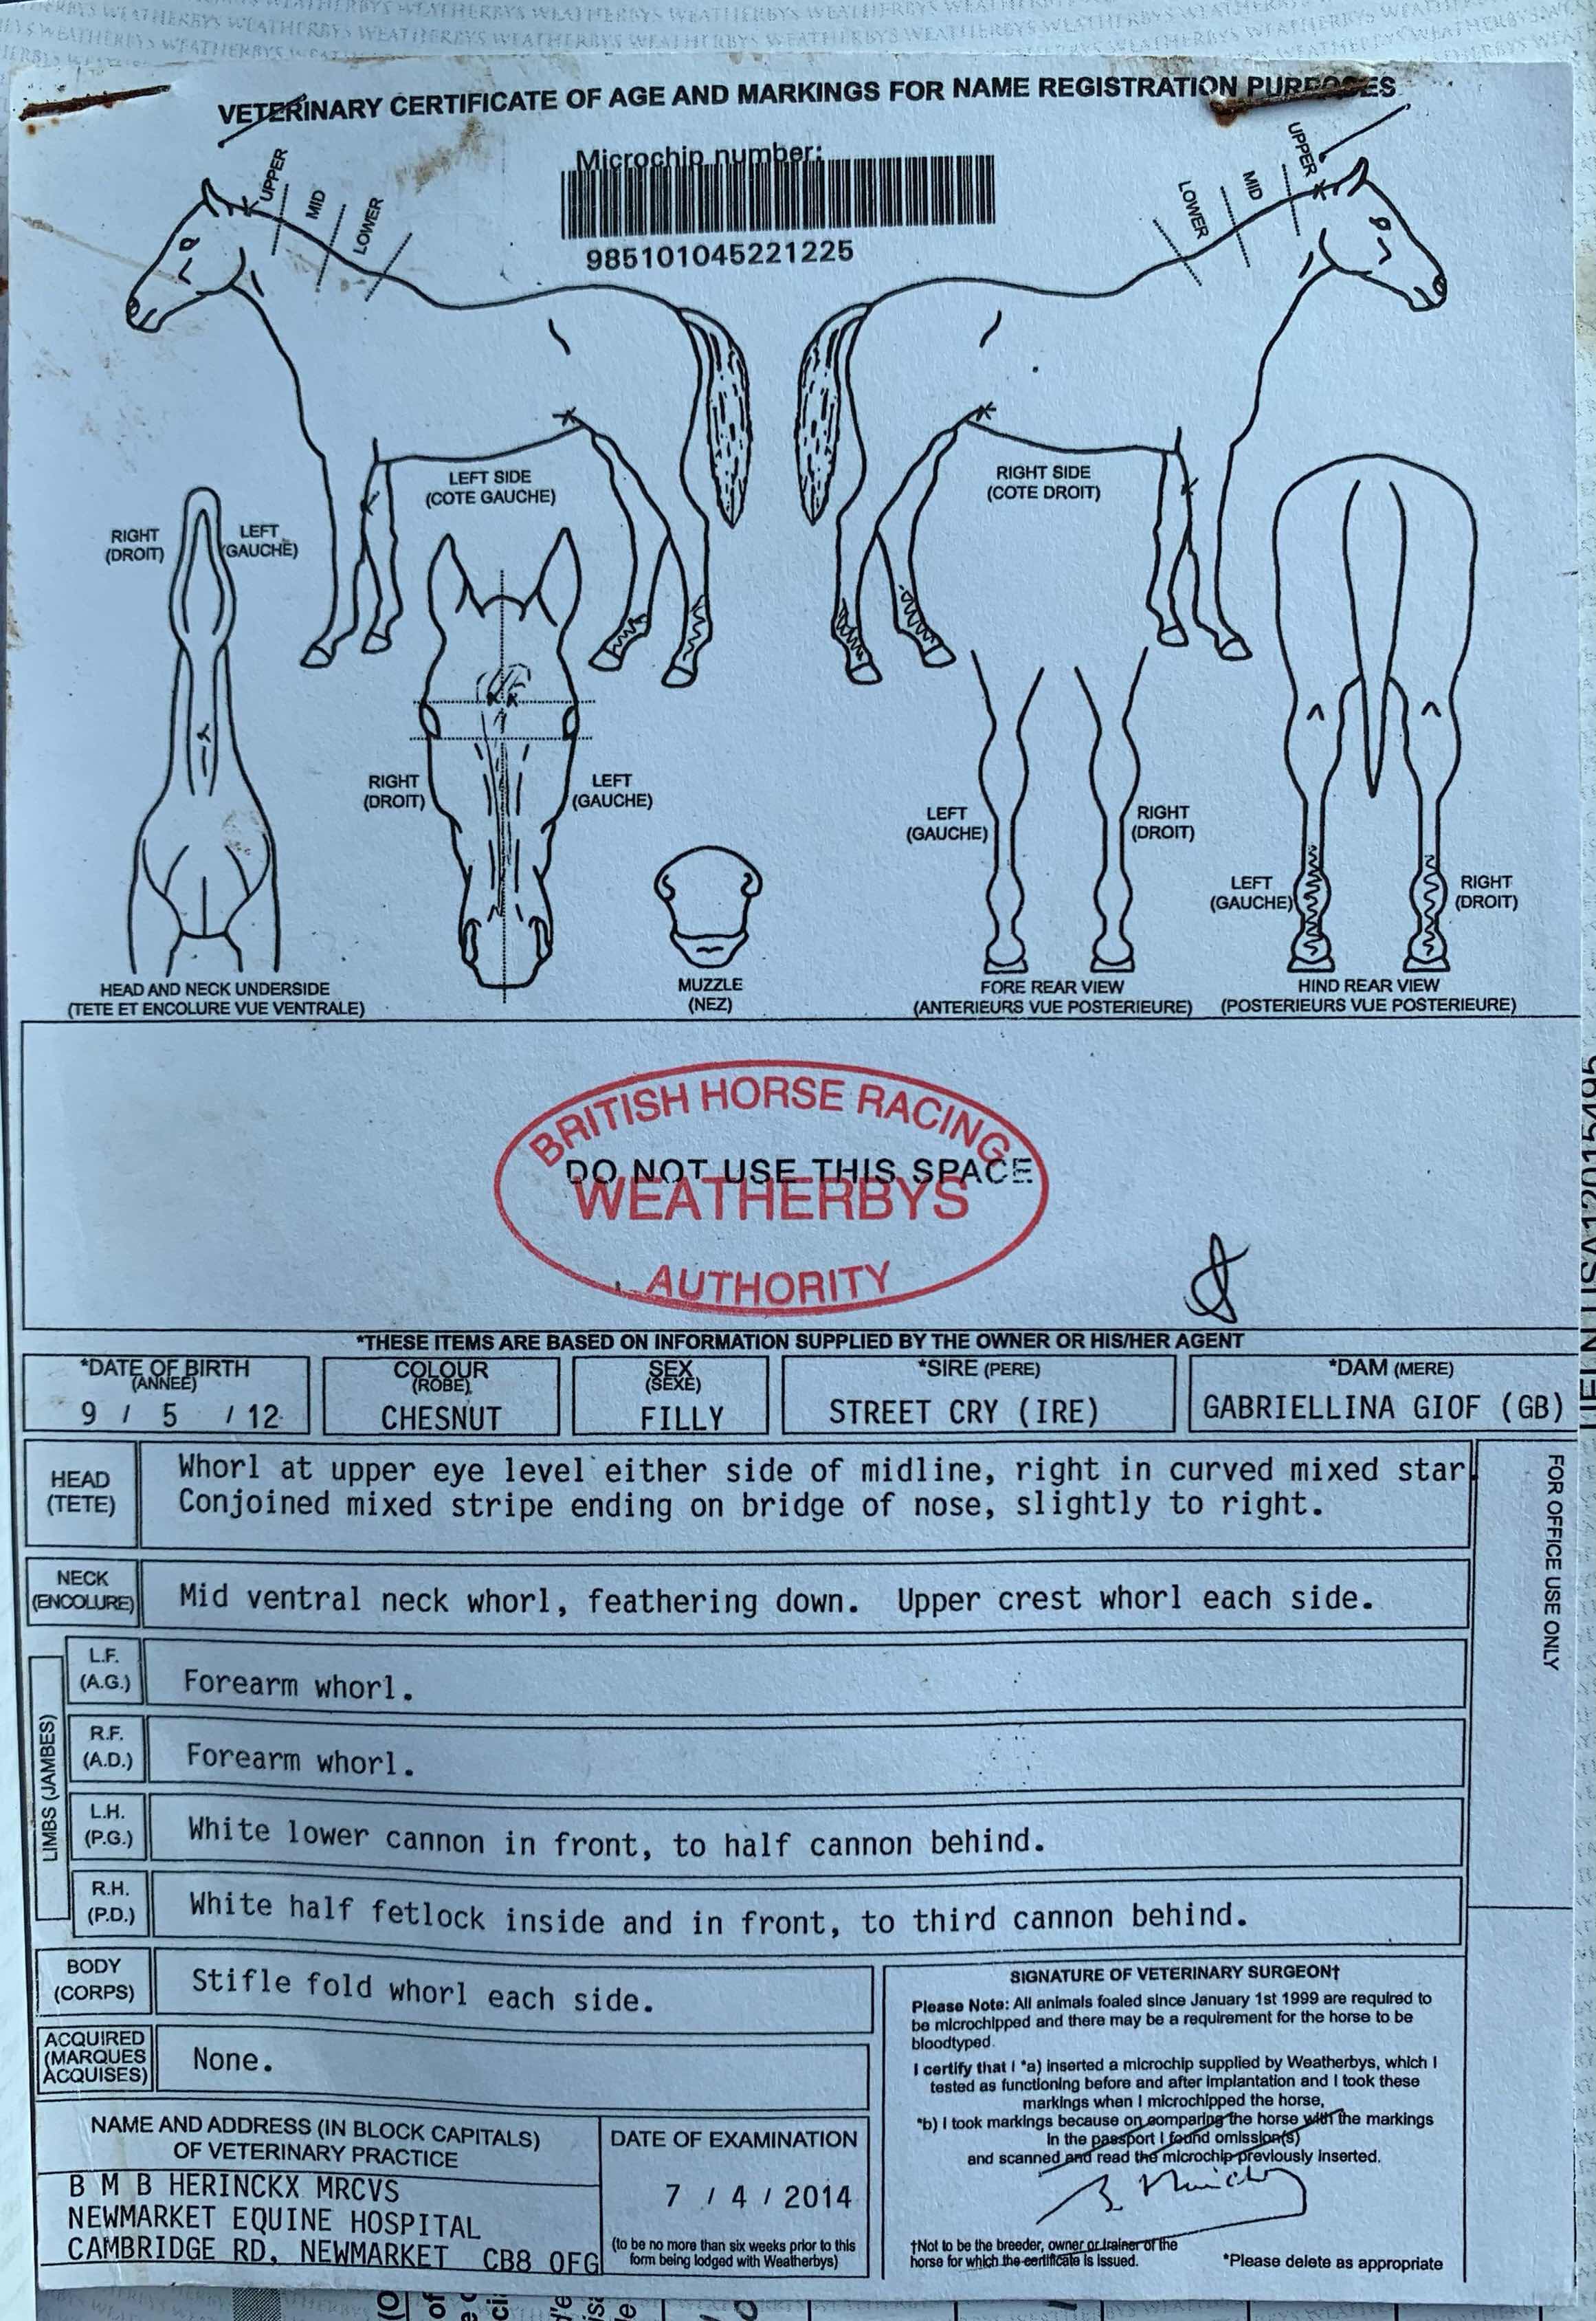 WEATHERBYS WEATHERBYS WEATHERBYS WEATHERBYS WEATHERBYS WEATHERBYS
VETERINARY CERTIFICATE OF AGE AND MARKINGS FOR NAME REGISTRATION PURPOSES
Microchip number:
985101045221225
UPPER
MID
LOWER
LOWER
MID
UPPER
LEFT SIDE
(COTE GAUCHE)
RIGHT SIDE
(COTE DROIT)
RIGHT
(DROIT)
LEFT
(GAUCHE)
RIGHT
(DROIT)
LEFT
(GAUCHE)
LEFT
(GAUCHE)
RIGHT
(DROIT)
LEFT
(GAUCHE)
RIGHT
(DROIT)
HEAD AND NECK UNDERSIDE
(TETE ET ENCOLURE VUE VENTRALE)
MUZZLE
(NEZ)
FORE REAR VIEW
(ANTERIEURS VUE POSTERIEURE)
HIND REAR VIEW
(POSTERIEURS VUE POSTERIEURE)
BRITISH HORSE RACING
DO NOT USE THIS SPACE
WEATHERBYS
AUTHORITY
*THESE ITEMS ARE BASED ON INFORMATION SUPPLIED BY THE OWNER OR HIS/HER AGENT
*DATE OF BIRTH
(ANNEE)
9 / 5 / 12
COLOUR
(ROBE)
CHESNUT
SEX
(SEXE)
FILLY
*SIRE (PERE)
STREET CRY (IRE)
*DAM (MERE)
GABRIELLINA GIOF (GB)
HEAD
(TETE)
Whorl at upper eye level either side of midline, right in curved mixed star
Conjoined mixed stripe ending on bridge of nose, slightly to right.
FOR OFFICE USE ONLY
NECK
(ENCOLURE)
Mid ventral neck whorl, feathering down. Upper crest whorl each side.
LIMBS (JAMBES)
L.F.
(A.G.)
Forearm whorl.
R.F.
(A.D.)
Forearm whorl.
L.H.
(P.G.)
White lower cannon in front, to half cannon behind.
R.H.
(P.D.)
White half fetlock inside and in front, to third cannon behind.
BODY
(CORPS)
Stifle fold whorl each side.
ACQUIRED
(MARQUES
ACQUISES)
None.
NAME AND ADDRESS (IN BLOCK CAPITALS)
OF VETERINARY PRACTICE
B M B HERINCKX MRCVS
NEWMARKET EQUINE HOSPITAL
CAMBRIDGE RD, NEWMARKET CB8 0FG
DATE OF EXAMINATION
7 / 4 / 2014
(to be no more than six weeks prior to this
form being lodged with Weatherbys)
SIGNATURE OF VETERINARY SURGEON†
Please Note: All animals foaled since January 1st 1999 are required to
be microchipped and there may be a requirement for the horse to be
bloodtyped.
I certify that I *a) inserted a microchip supplied by Weatherbys, which I
tested as functioning before and after implantation and I took these
markings when I microchipped the horse,
*b) I took markings because on comparing the horse with the markings
in the passport I found omission(s)
and scanned and read the microchip previously inserted.
†Not to be the breeder, owner or trainer of the
horse for which the certificate is issued.
*Please delete as appropriate